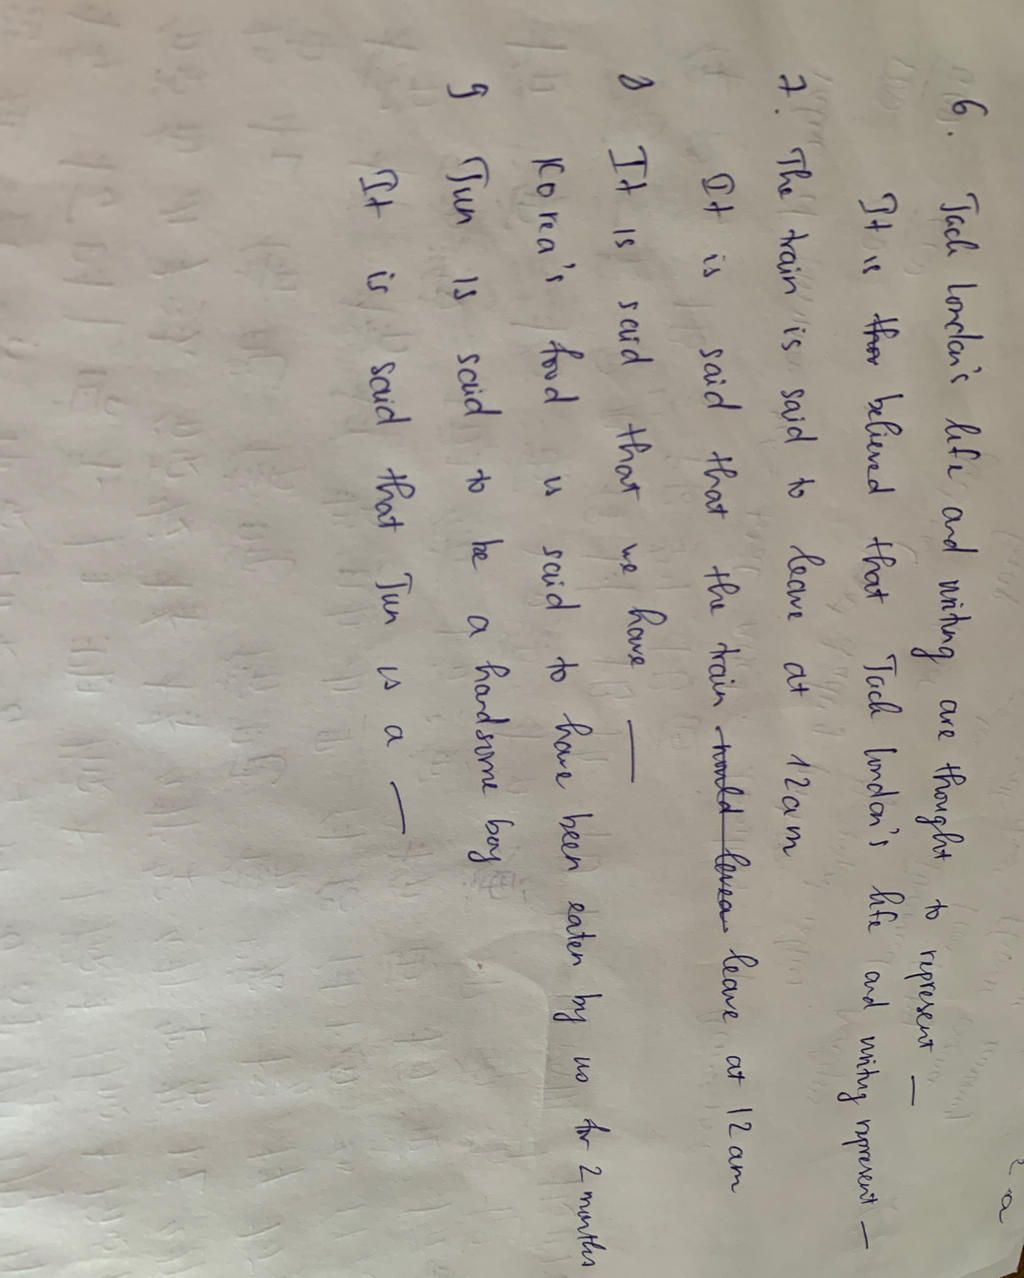 6. Jack London's life and writing are thought to represent —
It is thou believed that Jack London's life and writing represent —
7. The train is said to leave at 12am
It is said that the train would levea leave at 12am
8 It is said that we have —
Korea's food is said to have been eaten by us for 2 months
9 Jun is said to be a handsome boy
It is said that Jun is a —